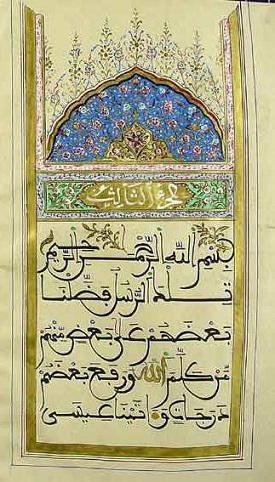 الجزء الثالث
بسم الله الرحمن الرحيم
تلك الرسل فضلنا
بعضهم على بعض منهم
من كلم الله ورفع بعضهم
درجات وءاتينا عيسى